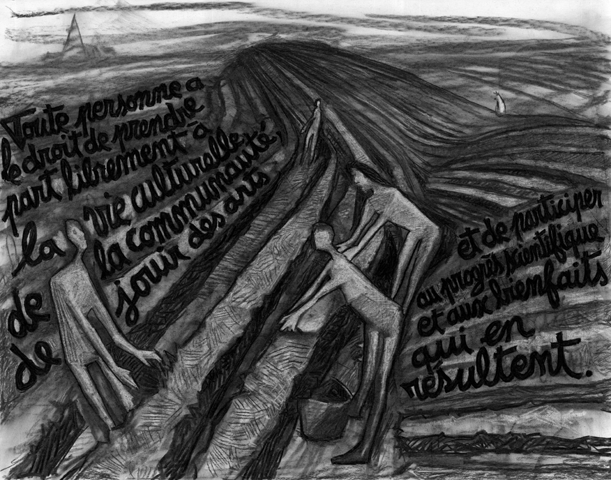 Toute personne a
le droit de prendre
part librement à
la vie culturelle
de la communauté,
de jouir des arts
et de participer
au progrès scientifique
et aux bienfaits
qui en
résultent.